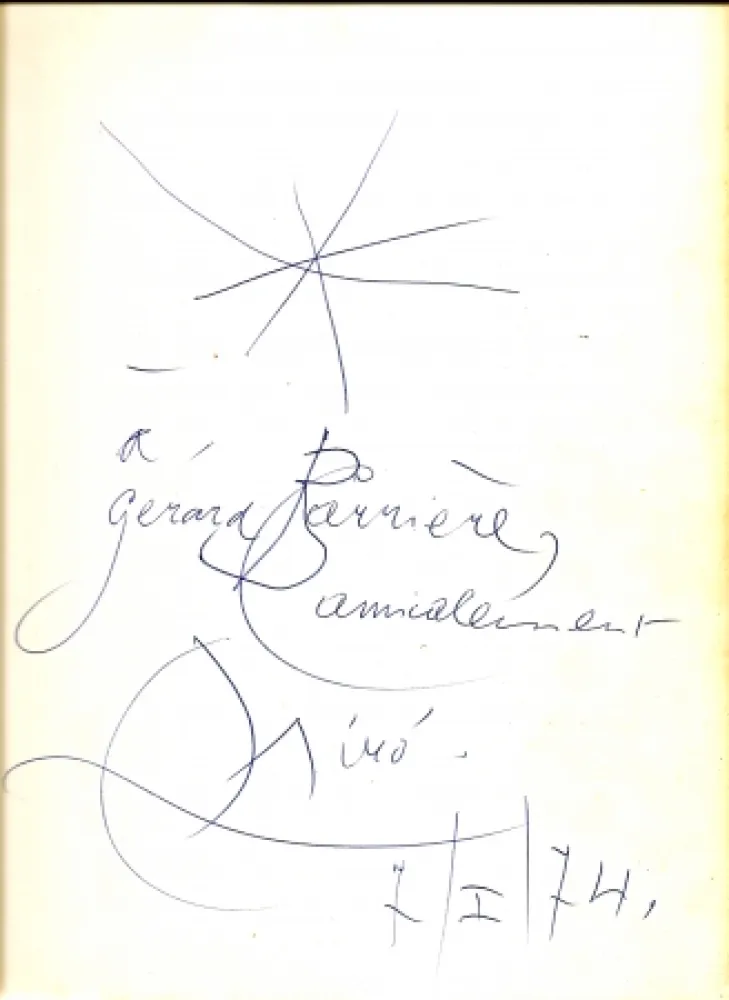 à
Gérard Barrière,
amicalement
Miró.
7/I/74.